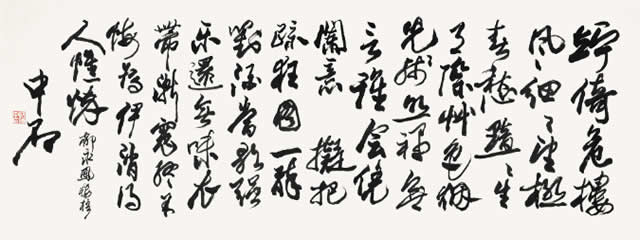 竚倚危樓
風細細望極
春愁黯黯生
天際草色烟
光殘照裡無
言誰會凭
闌意 擬把
疏狂圖一醉
對酒當歌強
樂還無味衣
帶漸寬終不
悔為伊消得
人憔悴 柳永鳳棲梧
中石